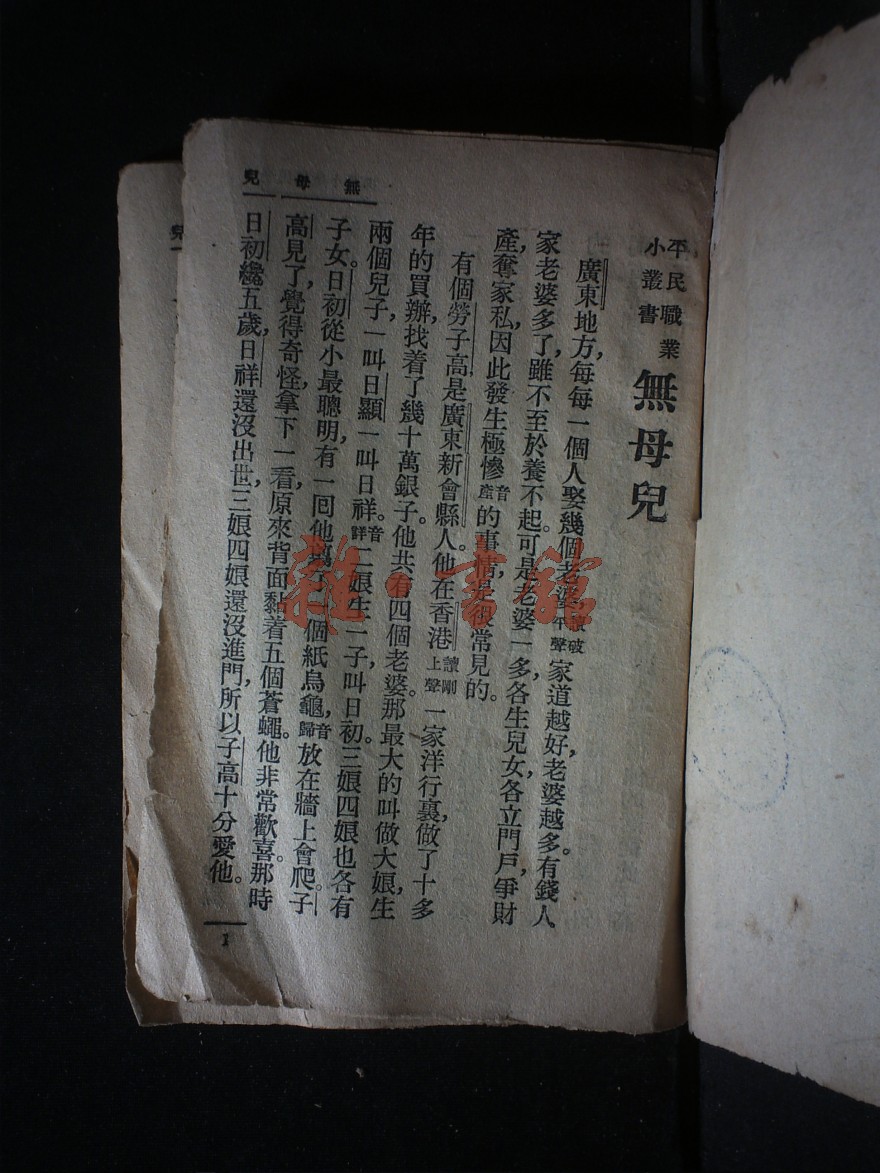 平民職業
小叢書
無母兒
廣東地方,每每一個人娶幾個老婆,讀破平聲家道越好,老婆越多。有錢人
家老婆多了,雖不至於養不起。可是老婆一多,各生兒女,各立門戶,爭財
產,奪家私,因此發生極慘音產的事情,是很常見的。
有個勞子高,是廣東新會縣人。他在香港讀剛上聲一家洋行裏,做了十多
年的買辦,找着了幾十萬銀子。他共有四個老婆。那最大的叫做大娘,生
兩個兒子,一叫日顯,一叫日祥。音詳二娘生一子,叫日初。三娘四娘也各有
子女。日初從小最聰明,有一回,他一個紙烏龜,音歸放在牆上會爬。子
高見了,覺得奇怪,拿下一看,原來背面黏着五個蒼蠅。他非常歡喜。那時
日初纔五歲,日祥還沒出世,三娘四娘還沒進門,所以子高十分愛他。
無母兒
1
兒
雜·書館